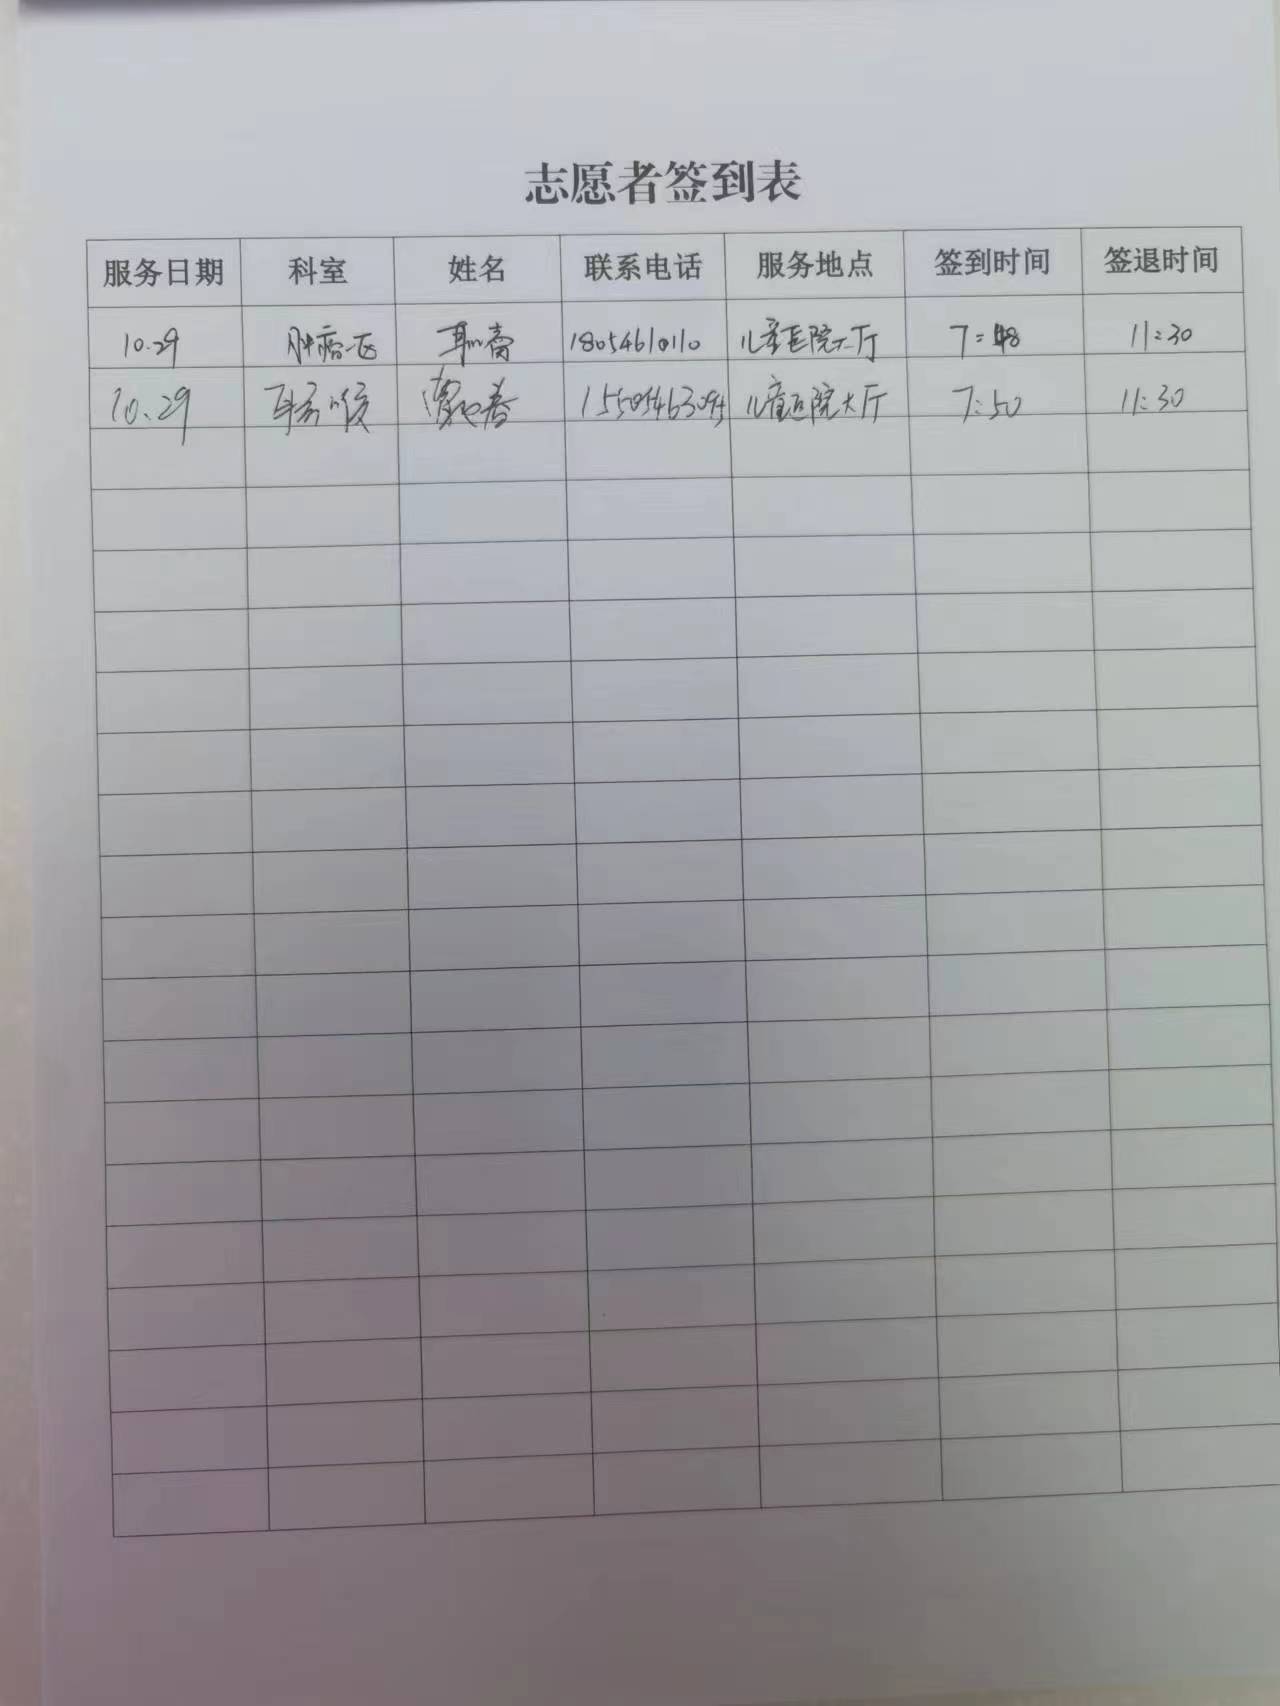 志愿者签到表
服务日期 科室 姓名 联系电话 服务地点 签到时间 签退时间
10.29 肿瘤一区 18054610110 儿童医院大厅 7:48 11:30
10.29 耳鼻喉 儿童医院大厅 7:50 11:30